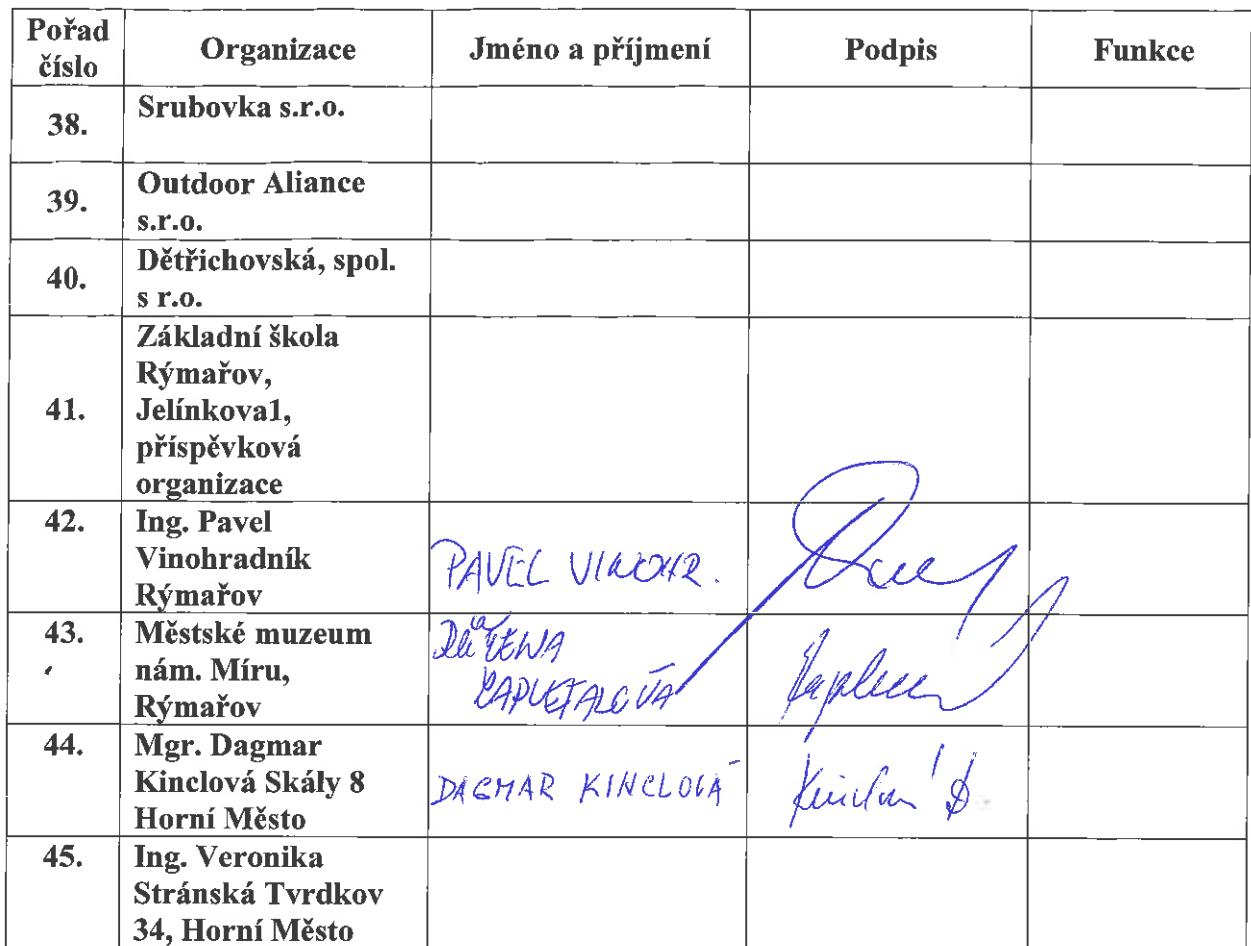 Pořad číslo Organizace Jméno a příjmení Podpis Funkce
38. Srubovka s.r.o.
39. Outdoor Aliance
s.r.o.
40. Dětřichovská, spol.
s r.o.
Základní škola
Rýmařov,
41. Jelínkova1,
příspěvková
organizace
42. Ing. Pavel
Vinohradník PAVEL VINOHR.
Rýmařov
43. Městské muzeum
nám. Míru,
Rýmařov
44. Mgr. Dagmar
Kinclová Skály 8 DAGMAR KINCLOVÁ
Horní Město
45. Ing. Veronika
Stránská Tvrdkov
34, Horní Město